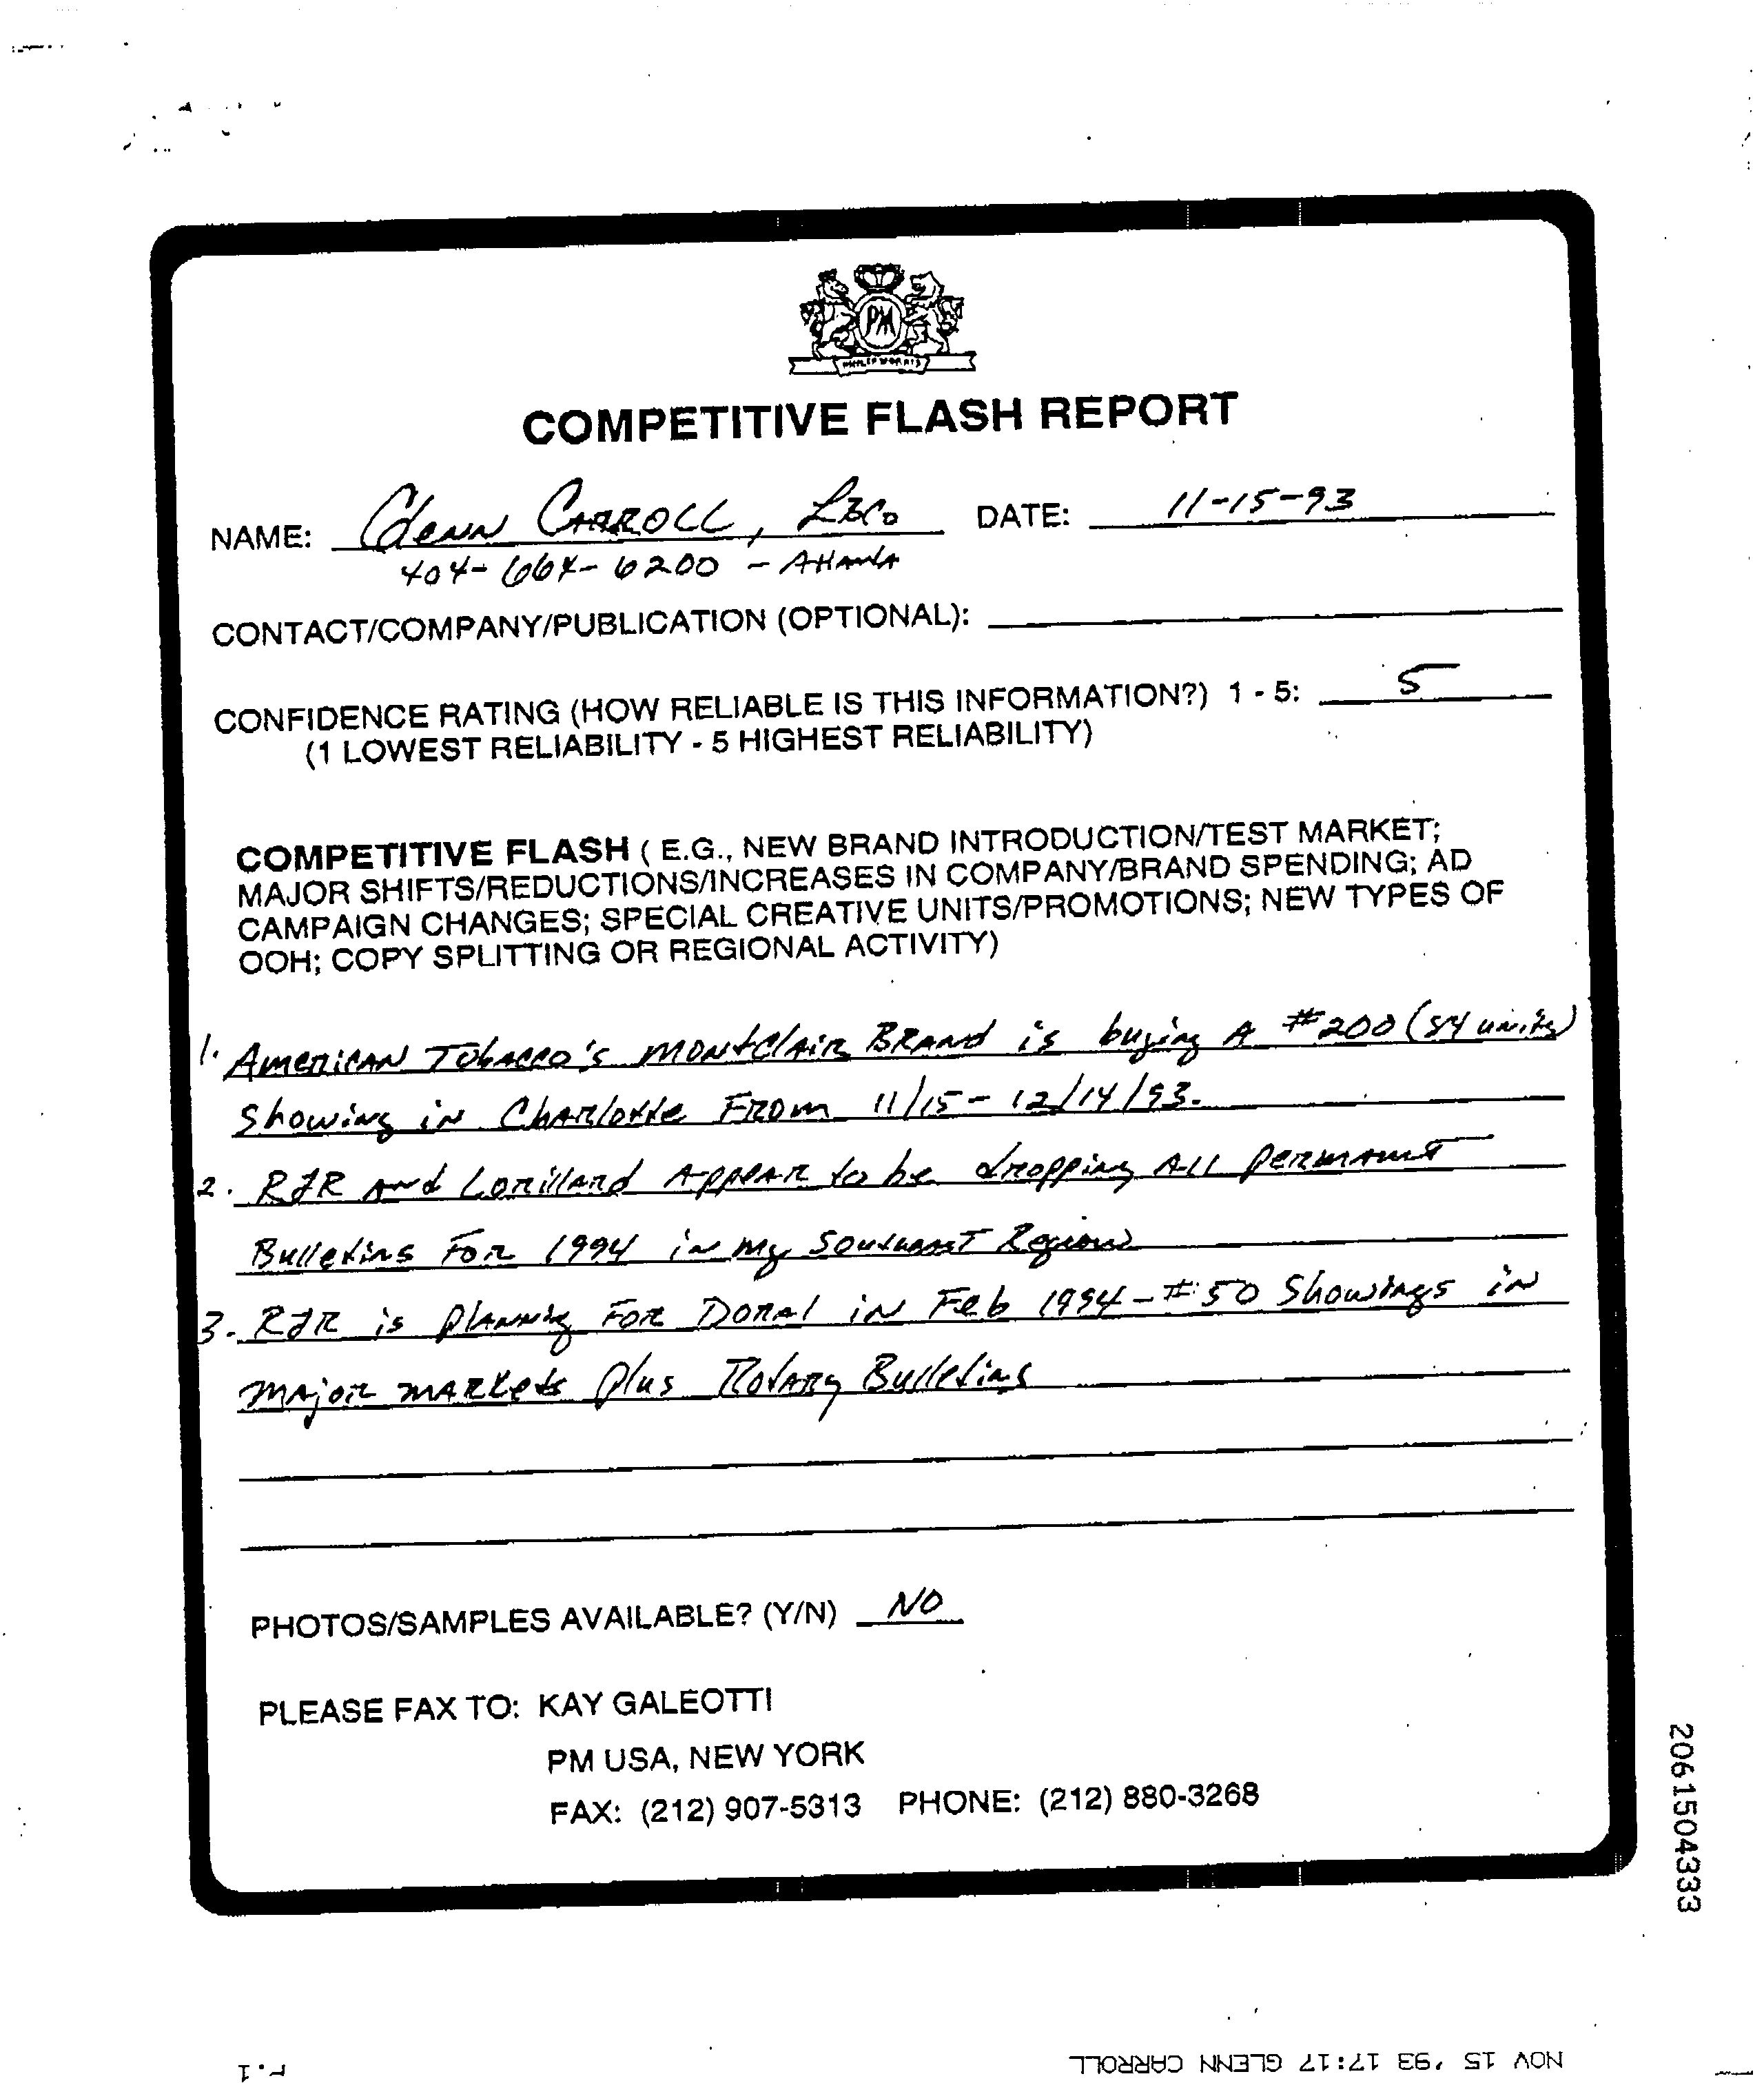 PM
PHILIP MORRIS
COMPETITIVE FLASH REPORT
NAME: Glenn Carroll, LBCo DATE: 11-15-93
404-664-6200 - Atlanta
CONTACT/COMPANY/PUBLICATION (OPTIONAL):
CONFIDENCE RATING (HOW RELIABLE IS THIS INFORMATION?) 1 - 5: 5
(1 LOWEST RELIABILITY - 5 HIGHEST RELIABILITY)
COMPETITIVE FLASH ( E.G., NEW BRAND INTRODUCTION/TEST MARKET;
MAJOR SHIFTS/REDUCTIONS/INCREASES IN COMPANY/BRAND SPENDING; AD
CAMPAIGN CHANGES; SPECIAL CREATIVE UNITS/PROMOTIONS; NEW TYPES OF
OOH; COPY SPLITTING OR REGIONAL ACTIVITY)
1. American Tobacco's Montclair Brand is buying A #200 (54 units)
Showing in Charlotte From 11/15 - 12/14/93.
2. RJR and Lorillard Appear to be dropping All permanent
Bulletins For 1994 in my Southeast Region
3. RJR is planning For Doral in Feb 1994 - #50 Showings in
major markets plus Rotary Bulletins
PHOTOS/SAMPLES AVAILABLE? (Y/N) NO
PLEASE FAX TO: KAY GALEOTTI
PM USA, NEW YORK
FAX: (212) 907-5313 PHONE: (212) 880-3268
2061504333
NOV 15 '93 17:17 GLENN CARROLL
P.1